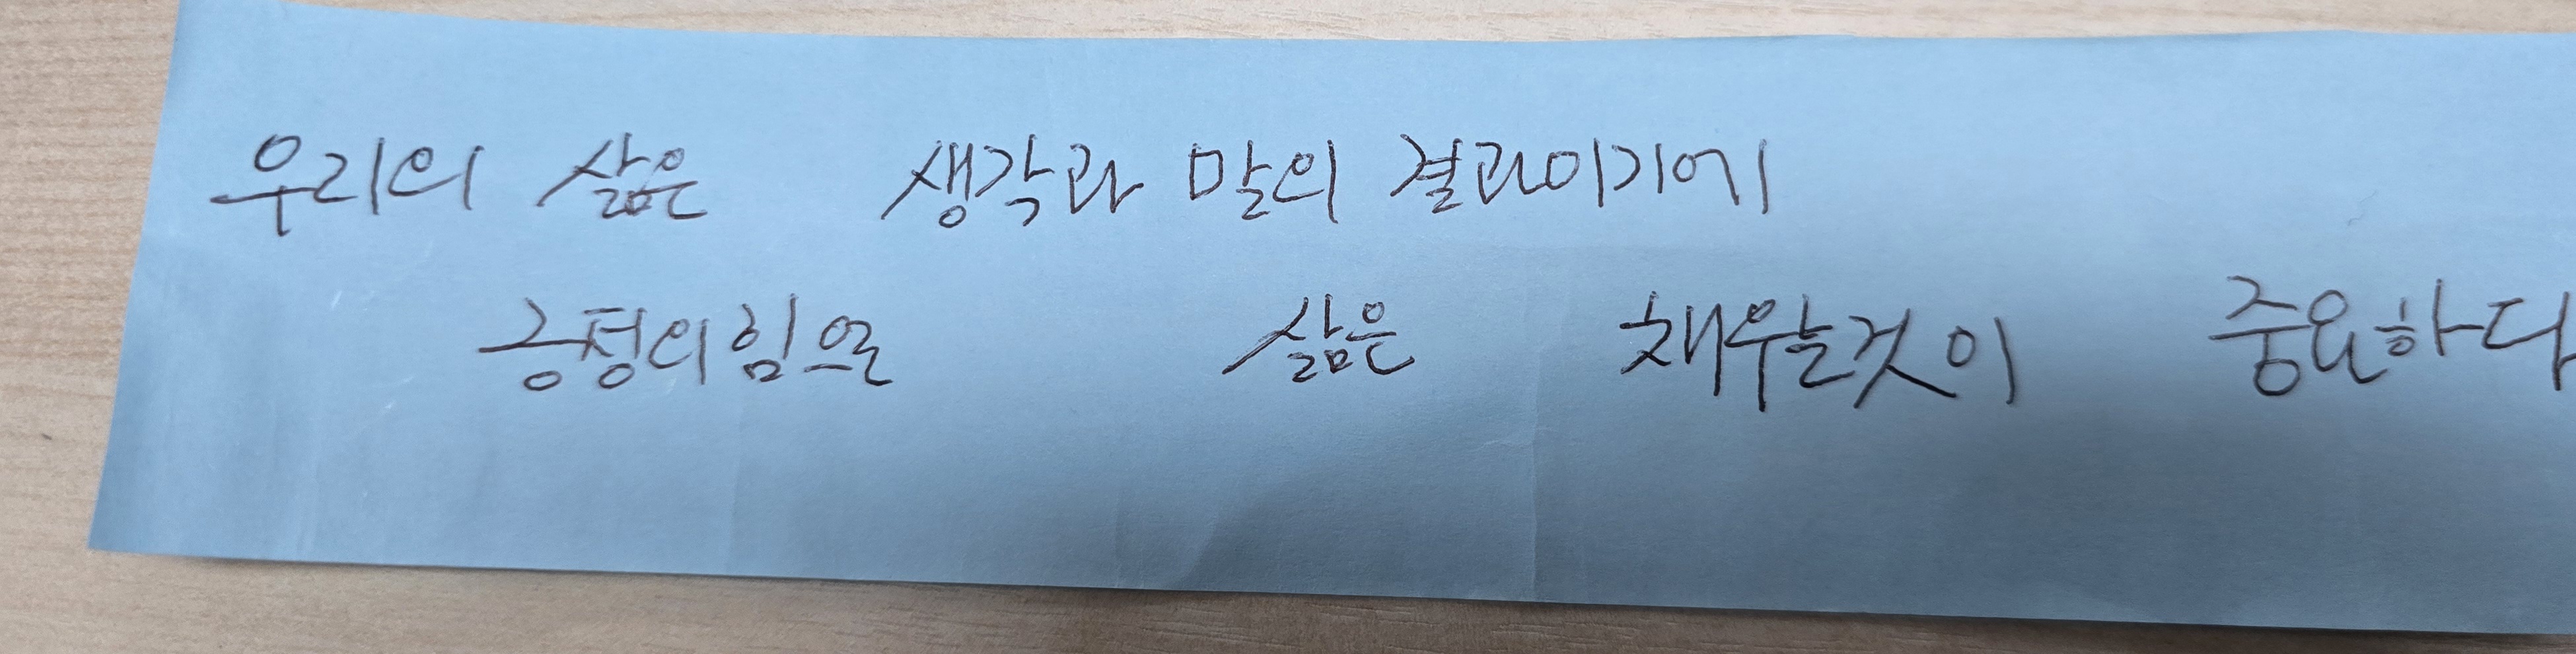 우리의 삶은 생각과 말의 결과이기에
긍정의힘으로 삶은 채우는것이 중요하다